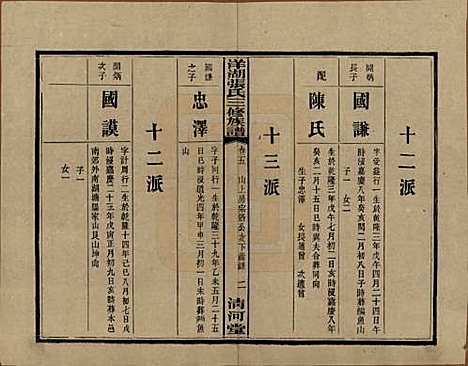 十二派
開炳長子
國謙
字受益行一生於乾隆三年戊午四月二十四日
時歿嘉慶八年癸亥閏二月初八日子時葬鯿魚
山
配
陳氏
生於乾隆三年戊午七月初二日亥時歿嘉慶八年
癸亥二月十五日巳時與夫合葬同向
生子忠澤 女長適曾 次適曾
十三派
洋湖張氏三修族譜
卷五
清河堂
國謙之子
忠澤
字子同行一生於乾隆三十九年乙未五月二十五
日巳時歿道光四年甲申三月初一日未時葬鯿魚
山
十二派
開炳次子
國謨
字計周行二生於乾隆十四年己巳八月初七日戌
時歿嘉慶二十三年戊寅正月初九日亥時葬本邑
南郊外南湖塘羅家山艮山坤向
子一
女一